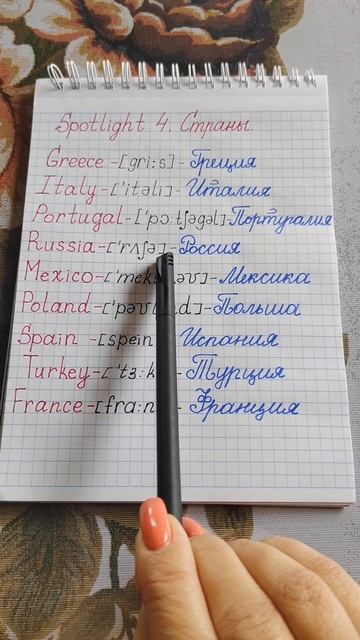 Spotlight 4. Страны.
Greece-[gri:s]-Греция
Italy-['itəli]-Италия
Portugal-['pɔ:tʃəgəl]-Португалия
Russia-['rʌʃə]-Россия
Mexico- -Мексика
Poland- -Польша
Spain -[spein -Испания
Turkey- -Турция
France- -Франция